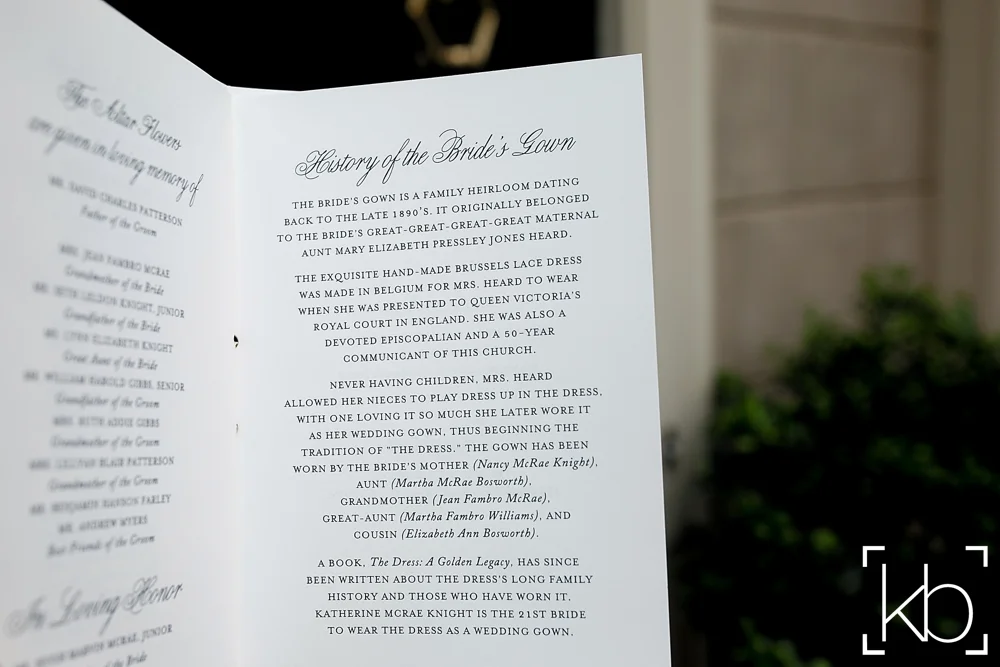 The Altar Flowers
are given in loving memory of
MR. DAVID CHARLES PATTERSON
Father of the Groom
MRS. JEAN FAMBRO MCRAE
Grandmother of the Bride
KNIGHT, JUNIOR
Grandfather of the Bride
ELIZABETH KNIGHT
Great Aunt of the Bride
MR. WILLIAM HAROLD GIBBS, SENIOR
Grandfather of the Groom
MRS. RUTH ADDIS GIBBS
Grandmother of the Groom
MRS. LILLIAN BLAIR PATTERSON
Grandmother of the Groom
MR. BENJAMIN HANSON FARLEY
MR. ANDREW MYERS
Best Friends of the Groom
In Loving Honor
MCRAE, JUNIOR
of the Bride
History of the Bride's Gown
THE BRIDE'S GOWN IS A FAMILY HEIRLOOM DATING
BACK TO THE LATE 1890'S. IT ORIGINALLY BELONGED
TO THE BRIDE'S GREAT-GREAT-GREAT-GREAT MATERNAL
AUNT MARY ELIZABETH PRESSLEY JONES HEARD.
THE EXQUISITE HAND-MADE BRUSSELS LACE DRESS
WAS MADE IN BELGIUM FOR MRS. HEARD TO WEAR
WHEN SHE WAS PRESENTED TO QUEEN VICTORIA'S
ROYAL COURT IN ENGLAND. SHE WAS ALSO A
DEVOTED EPISCOPALIAN AND A 50-YEAR
COMMUNICANT OF THIS CHURCH.
NEVER HAVING CHILDREN, MRS. HEARD
ALLOWED HER NIECES TO PLAY DRESS UP IN THE DRESS,
WITH ONE LOVING IT SO MUCH SHE LATER WORE IT
AS HER WEDDING GOWN, THUS BEGINNING THE
TRADITION OF "THE DRESS." THE GOWN HAS BEEN
WORN BY THE BRIDE'S MOTHER (Nancy McRae Knight),
AUNT (Martha McRae Bosworth),
GRANDMOTHER (Jean Fambro McRae),
GREAT-AUNT (Martha Fambro Williams), AND
COUSIN (Elizabeth Ann Bosworth).
A BOOK, The Dress: A Golden Legacy, HAS SINCE
BEEN WRITTEN ABOUT THE DRESS'S LONG FAMILY
HISTORY AND THOSE WHO HAVE WORN IT.
KATHERINE MCRAE KNIGHT IS THE 21ST BRIDE
TO WEAR THE DRESS AS A WEDDING GOWN.
kb